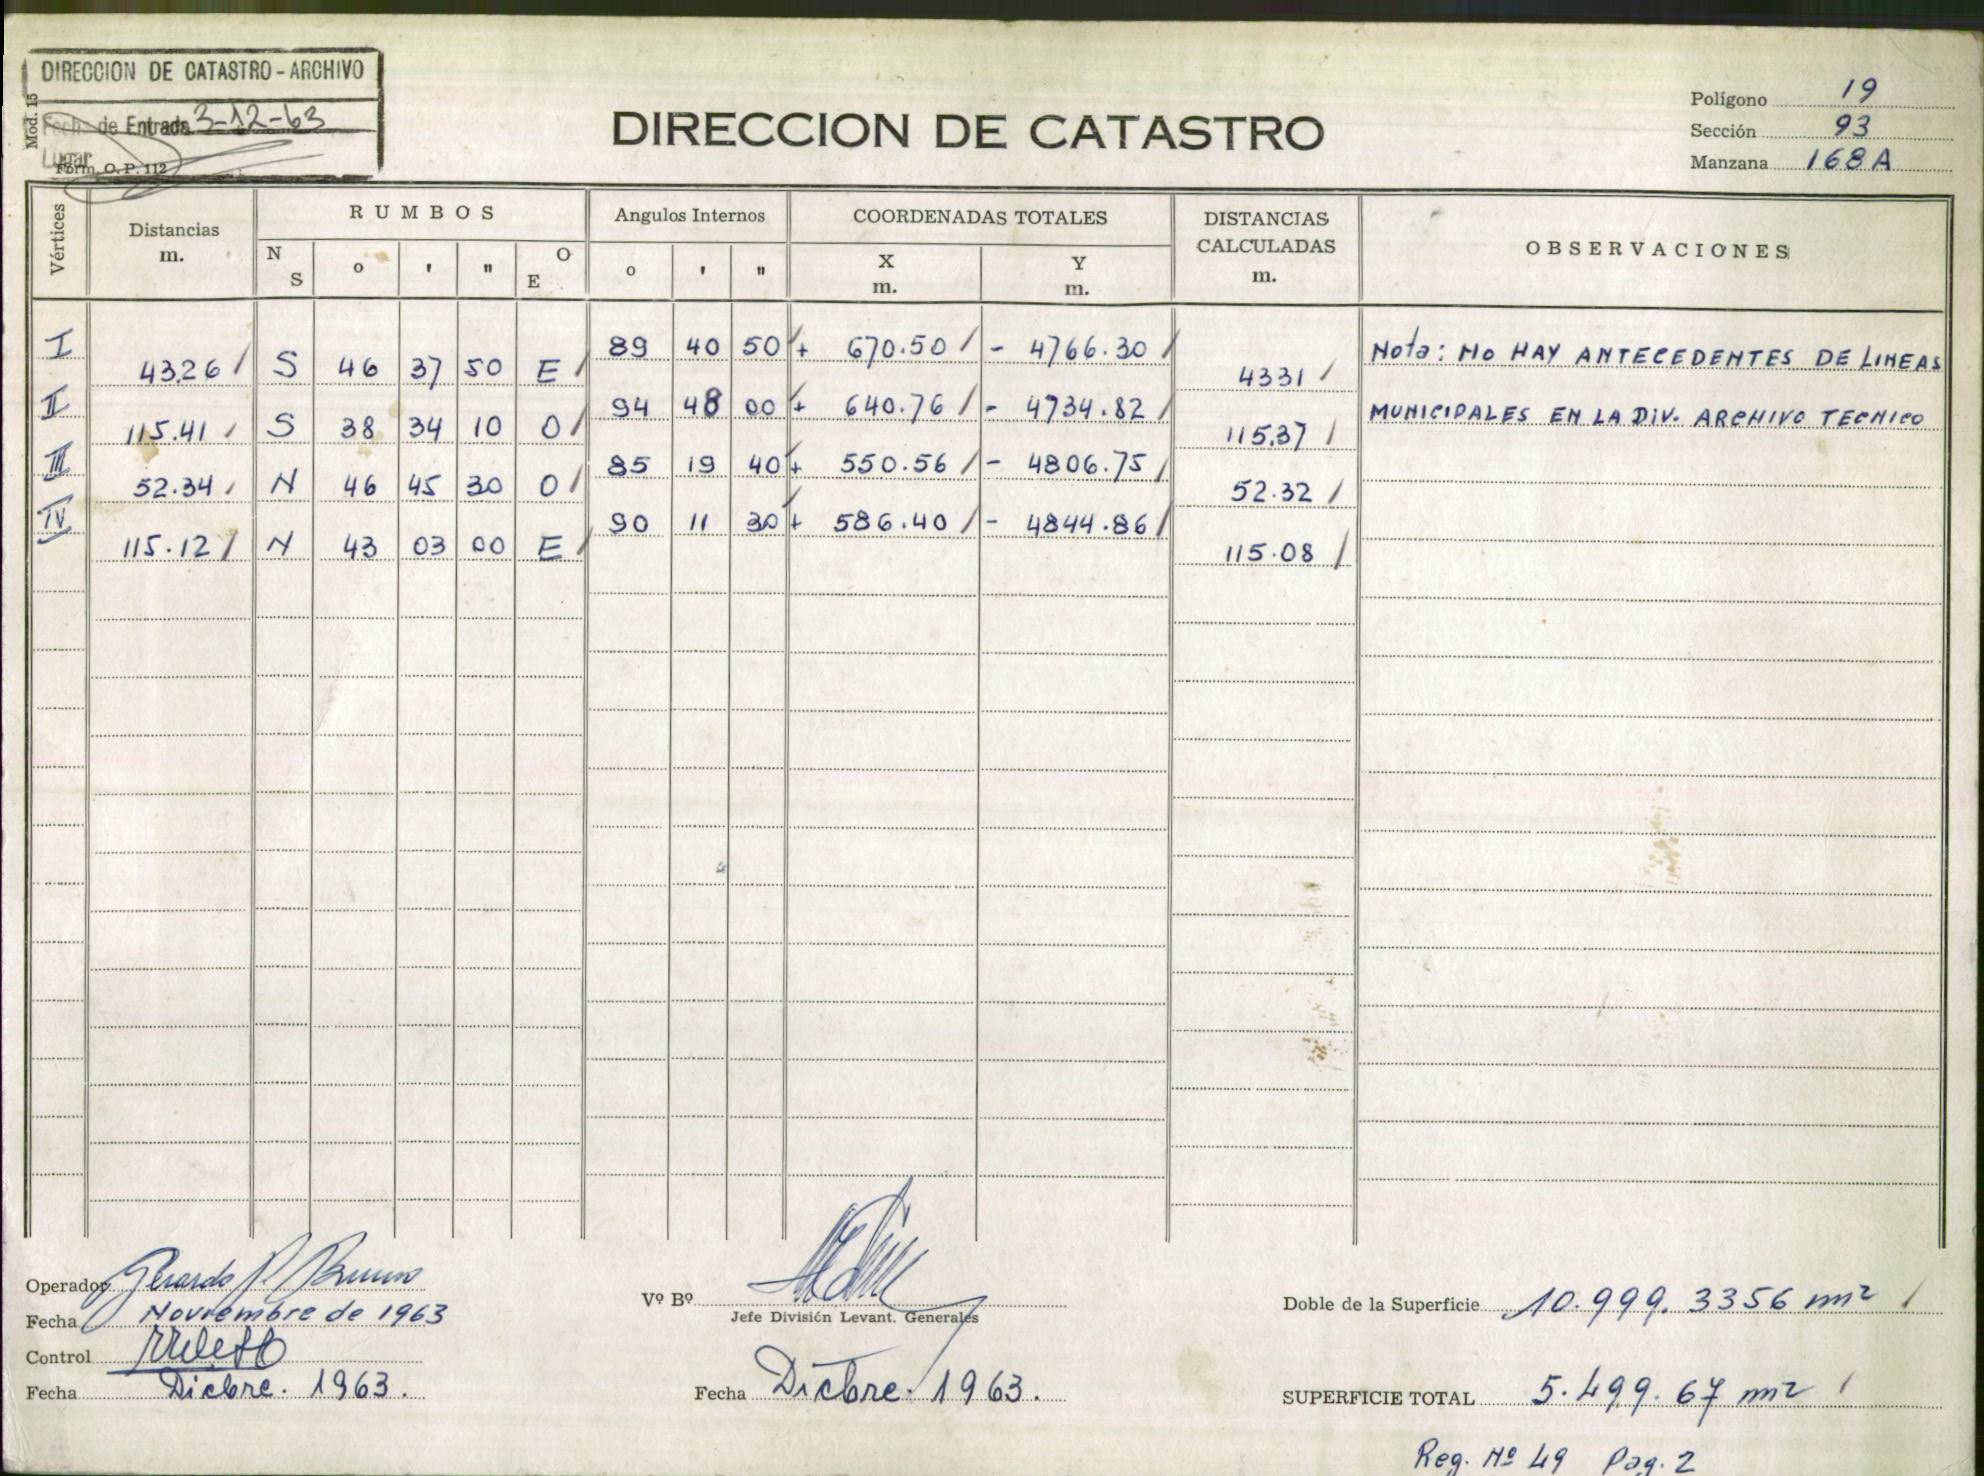 DIRECCION DE CATASTRO - ARCHIVO
Fech. de Entrada 3-12-63
Lugar
Mod. 15
Form. O. P. 112
DIRECCION DE CATASTRO
Polígono 19
Sección 93
Manzana 168 A
Vértices
Distancias m.
RUMBOS
N S
o ' "
O E
Angulos Internos
o ' "
COORDENADAS TOTALES
X m.
Y m.
DISTANCIAS CALCULADAS m.
OBSERVACIONES
I 89 40 50 + 670.50 - 4766.30
43.26 S 46 37 50 E 4331
II 94 48 00 + 640.76 - 4734.82
115.41 S 38 34 10 O 115.37
III 85 19 40 + 550.56 - 4806.75
52.34 N 46 45 30 O 52.32
IV 90 11 30 + 586.40 - 4844.86
115.12 N 43 03 00 E 115.08
Nota: NO HAY ANTECEDENTES DE LINEAS
MUNICIPALES EN LA DIV. ARCHIVO TECNICO
Operador Gerardo P. Bruno
Fecha Noviembre de 1963
Control
Fecha Dicbre. 1963.
Vº Bº
Jefe División Levant. Generales
Fecha Dicbre. 1963.
Doble de la Superficie 10.999.3356 m2
SUPERFICIE TOTAL 5.499.67 m2
Reg. Nº 49 Pag. 2